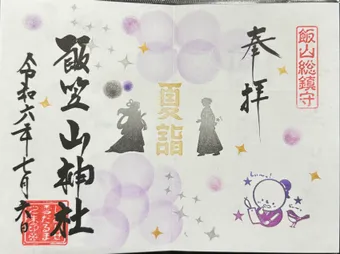 飯山総鎮守
奉拝
夏詣
飯笠山神社
令和六年七月六日